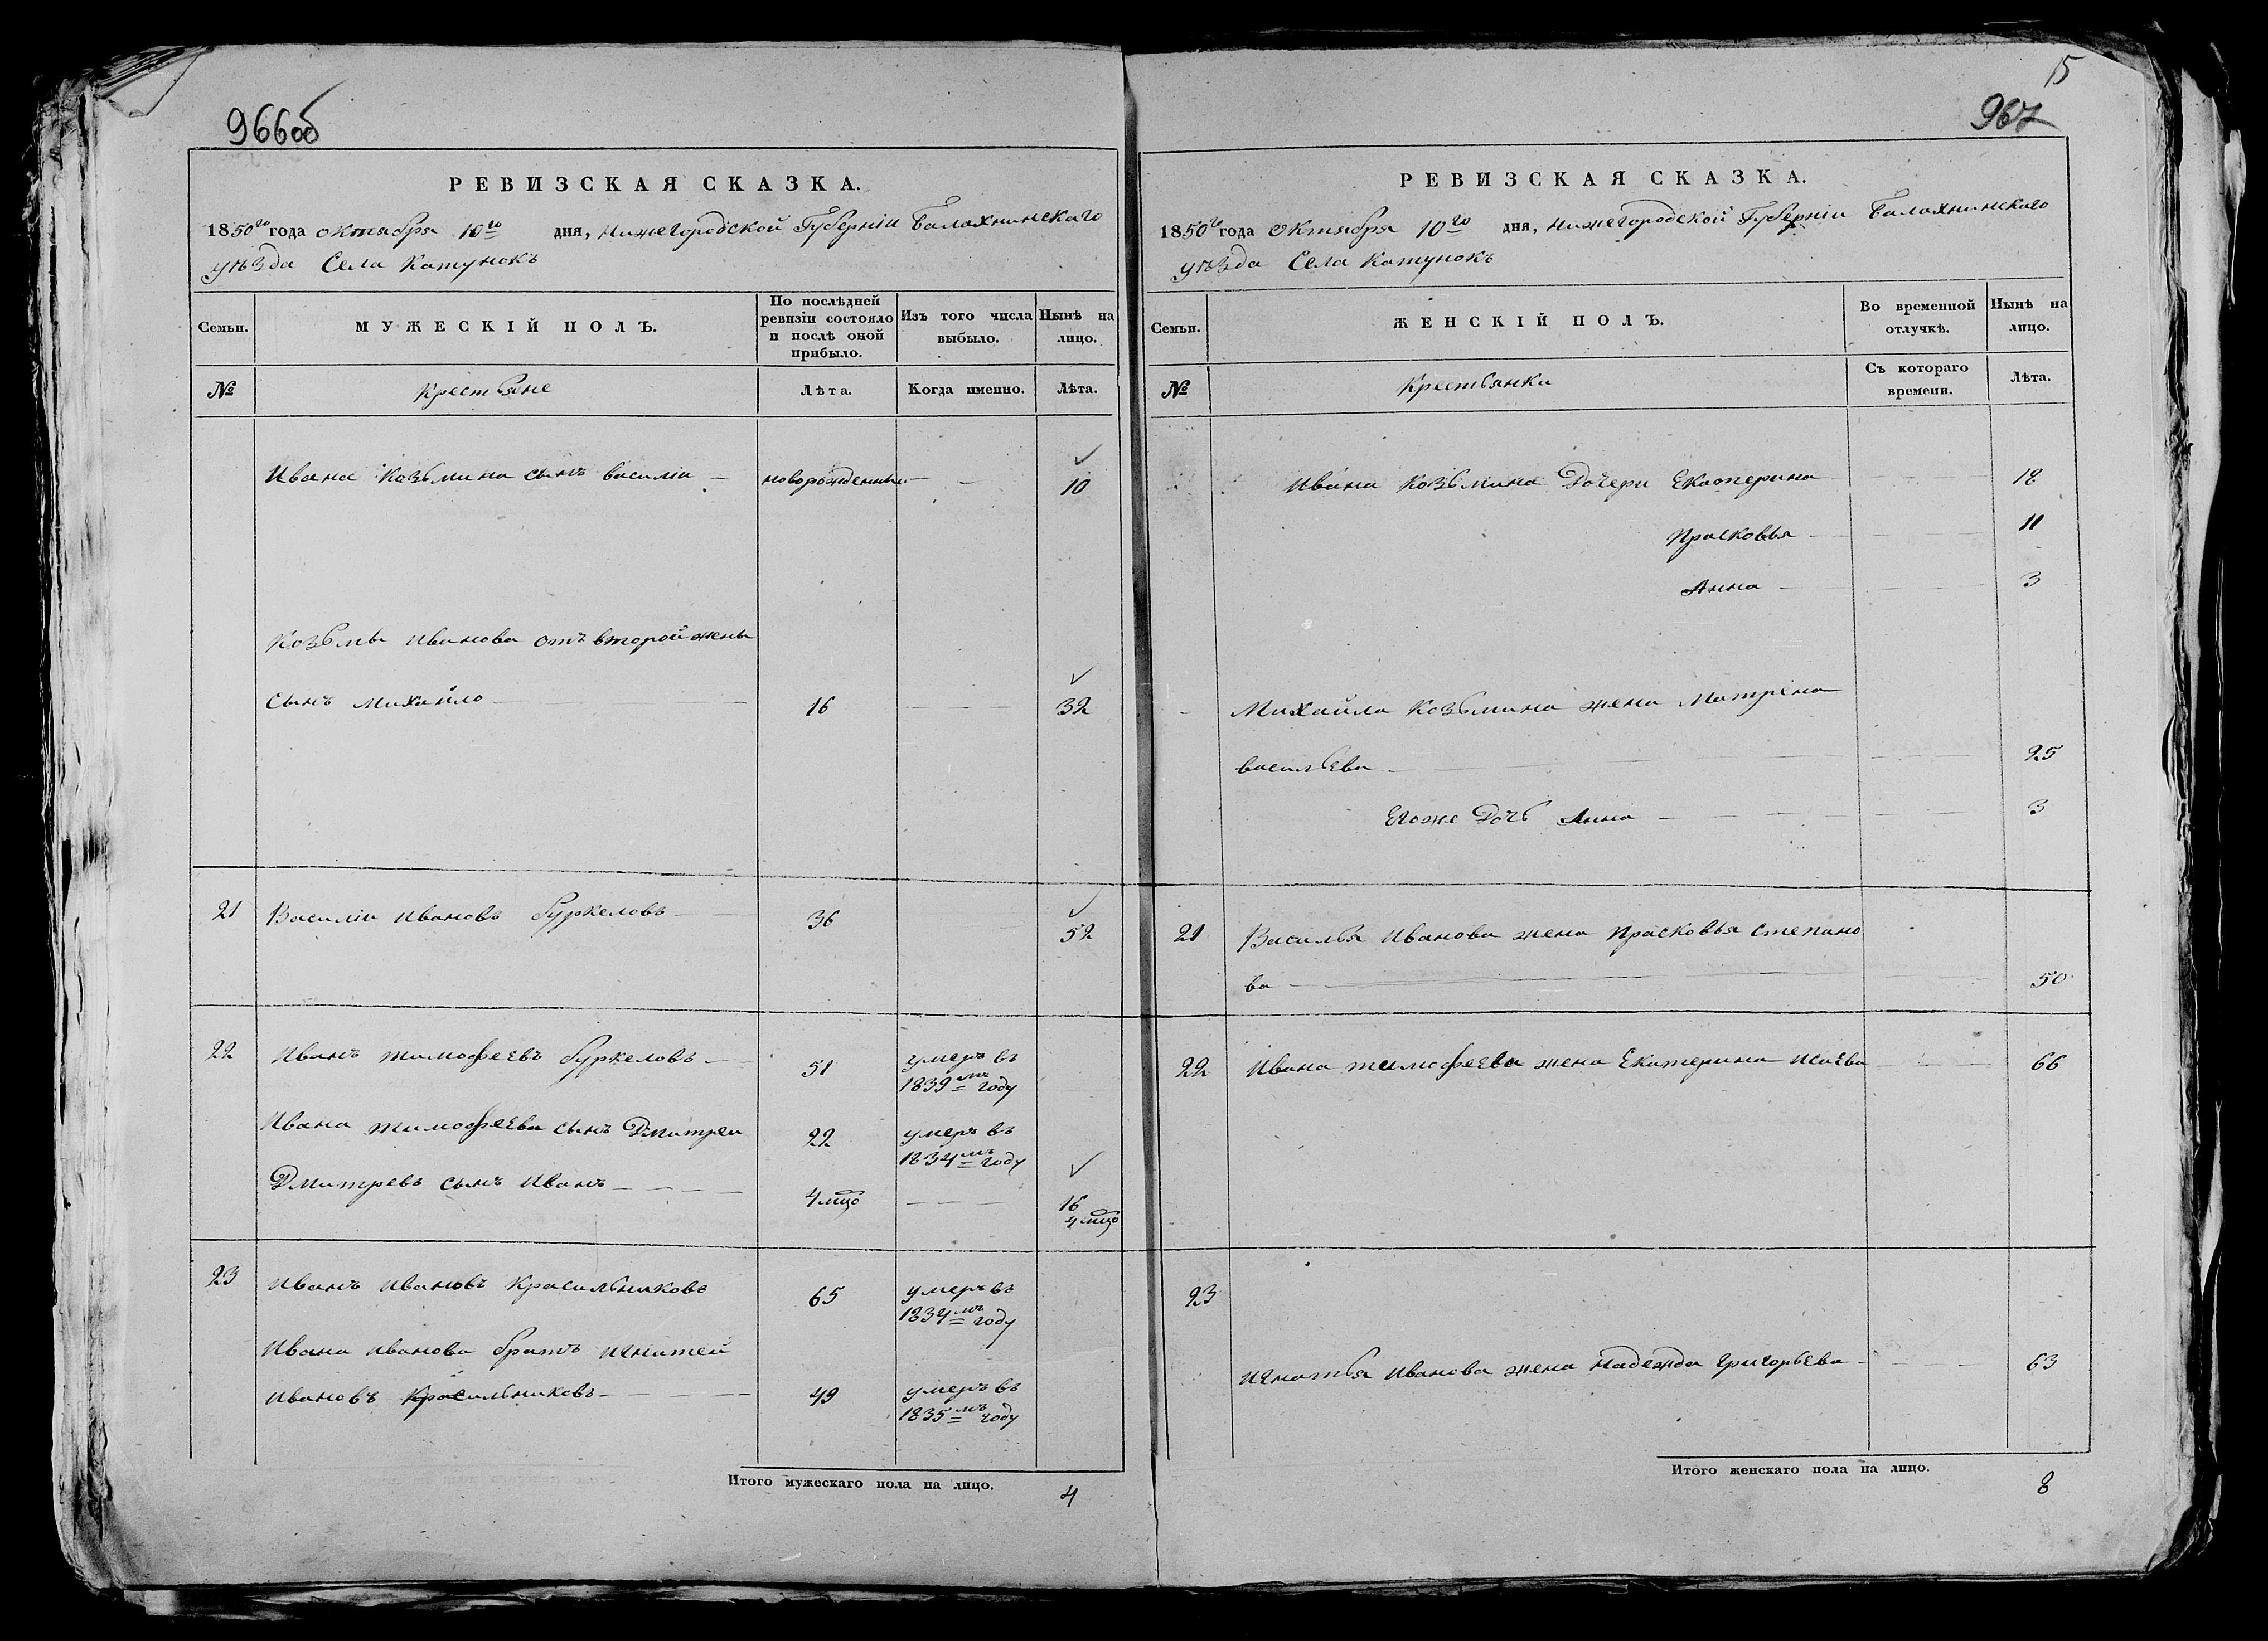 966об
РЕВИЗСКАЯ СКАЗКА.
1850го года октября 10го дня, Нижегородской Губерніи Балахнинскаго
уѣзда Села Катунокъ
Семьи.
МУЖЕСКІЙ ПОЛЪ.
По послѣдней ревизіи состояло и послѣ оной прибыло.
Изъ того числа выбыло.
Нынѣ на лицо.
№
Крестьяне
Лѣта.
Когда именно.
Лѣта.
Ивана Козьмина сынъ василіи новорожденный 10
Козьмы Иванова отъ второй жены
сынъ Михайло 16 32
21 Василіи Ивановъ буркеловъ 36 52
22 Иванъ тимофеевъ буркеловъ 51 умеръ въ
1839мъ году
Ивана тимофеева сынъ Дмитреи 22 умеръ въ
1834мъ году
Дмитревъ сынъ Иванъ 4 мцо 16
4 мцо
23 Иванъ Ивановъ Красильниковъ 65 умеръ въ
1834мъ году
Ивана Иванова братъ Игнатей
Ивановъ Красильниковъ 49 умеръ въ
1835мъ году
Итого мужескаго пола на лицо. 4
15
967
РЕВИЗСКАЯ СКАЗКА.
1850го года Октября 10го дня, Нижегородской Губерніи Балахнинскаго
уѣзда Села Катунокъ
Семьи.
ЖЕНСКІЙ ПОЛЪ.
Во временной отлучкѣ.
Нынѣ на лицо.
№
Крестьянки
Съ котораго времени.
Лѣта.
Ивана Козьмина Дочери Екатерина 18
Прасковья 11
Анна 3
Михайла Козьмина жена Матрена
васильева 25
Егоже Дочь Анна 3
21 Василья Иванова жена Прасковья Степано
ва 50
22 Ивана тимофеева жена Екатерина Исаева 66
23
Игнатья Иванова жена Надежда Григорьева 63
Итого женскаго пола на лицо. 8